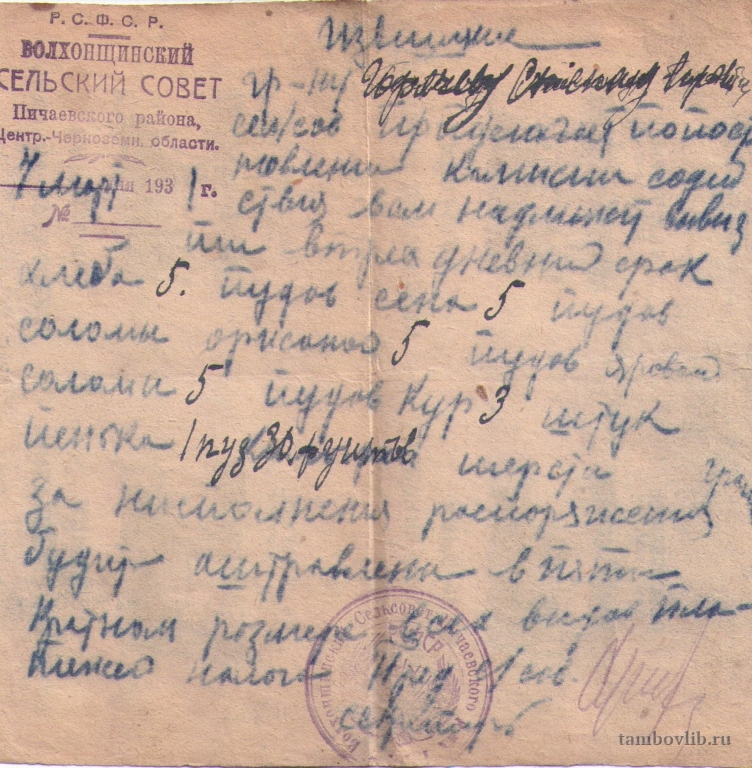 Р. С. Ф. С. Р.
ВОЛХОНЩИНСКИЙ
СЕЛЬСКИЙ СОВЕТ
Пичаевского района,
Центр.-Черноземн. области.
7 март 1931 г.
№
Извищение
гр-ну
сел/сов предлогает попост
новлению камисии содей
ствия вам надлежит вывиз
ти втрех дневний срок
хлеба 5. пудов сена 5 пудов
соломы оржаной 5 пудов яровой
соломи 5 пудов Кур 3 штук
пенька 1 пуд 30 фунтов шерста
за нисполнения роспоряжения
будит аштравлена в пяти
кратном розмере всех видов пла
тежей налога Пред с/сов.
секретарь
tambovlib.ru